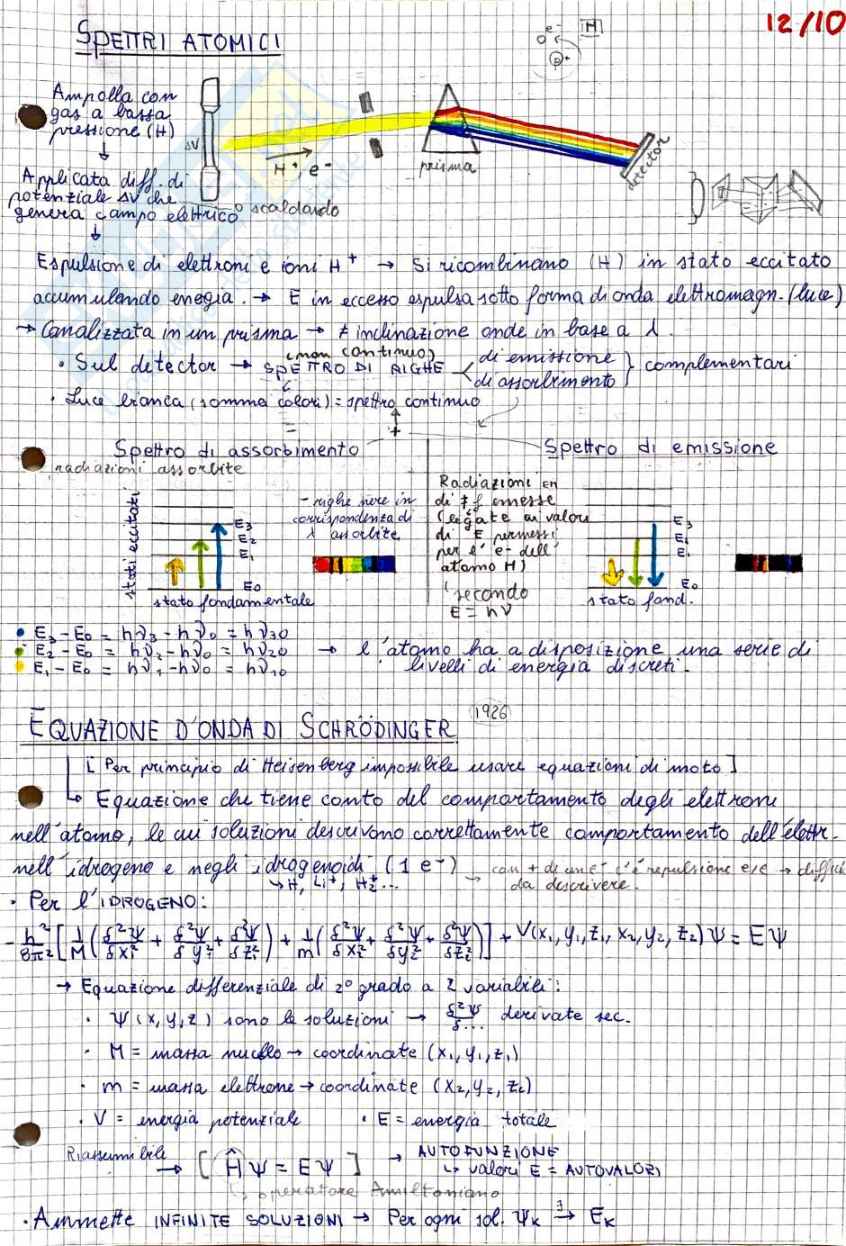 12/10
SPETTRI ATOMICI
e-
H
p+
Ampolla con
gas a bassa
pressione (H)
ΔV
H+, e-
prisma
detector
Applicata diff. di
potenziale ΔV che
genera campo elettrico o scaldando
Espulsione di elettroni e ioni H+ → Si ricombinano (H) in stato eccitato
accumulando enegia. → E in eccesso espulsa sotto forma di onda elettromagn. (luce)
→ Canalizzata in un prisma → ≠ inclinazione onde in base a λ.
(non continuo)
• Sul detector → SPETTRO DI RIGHE < di emissione } complementari
di assorbimento
• Luce bianca (somma colori) = spettro continuo
+
Spettro di assorbimento
Spettro di emissione
radiazioni assorbite
stati eccitati
E3
E2
E1
E0
stato fondamentale
- righe nere in
corrispondenza di
λ assorbite
Radiazioni en
di ≠ f emesse
(legate ai valori
di E permessi
per l'e- dell'
atomo H)
(secondo
E = hν
E3
E2
E1
E0
stato fond.
• E3-E0 = hν3-hν0 = hν30
• E2-E0 = hν2-hν0 = hν20 → l'atomo ha a disposizione una serie di
• E1-E0 = hν1-hν0 = hν10 livelli di energia discreti.
EQUAZIONE D'ONDA DI SCHRÖDINGER 1926
[Per principio di Heisenberg impossibile usare equazioni di moto]
↳ Equazione che tiene conto del comportamento degli elettroni
nell'atomo, le cui soluzioni descrivono correttamente comportamento dell'elettr.
nell'idrogeno e negli idrogenoidi (1 e-) → con + di un e- c'è repulsione e/e → difficile
↳ H, Li+, H2+... da descrivere.
• Per l'IDROGENO:
- h²/8π² [1/M (δ²Ψ/δx1² + δ²Ψ/δy1² + δ²Ψ/δz1²) + 1/m (δ²Ψ/δx2² + δ²Ψ/δy2² + δ²Ψ/δz2²)] + V(x1, y1, z1, x2, y2, z2) Ψ = EΨ
→ Equazione differenziale di 2° grado a 2 variabili:
• Ψ(x,y,z) sono le soluzioni → δ²Ψ/δ... derivate sec.
• M = massa nucleo → coordinate (x1,y1,z1)
• m = massa elettrone → coordinate (x2,y2,z2)
• V = energia potenziale • E = energia totale
Riassumibile → [ĤΨ = EΨ] → AUTOFUNZIONE
↳ valori E = AUTOVALORI
↳ operatore Amiltoniano
• Ammette INFINITE SOLUZIONI → Per ogni sol. ΨK ∃→ EK